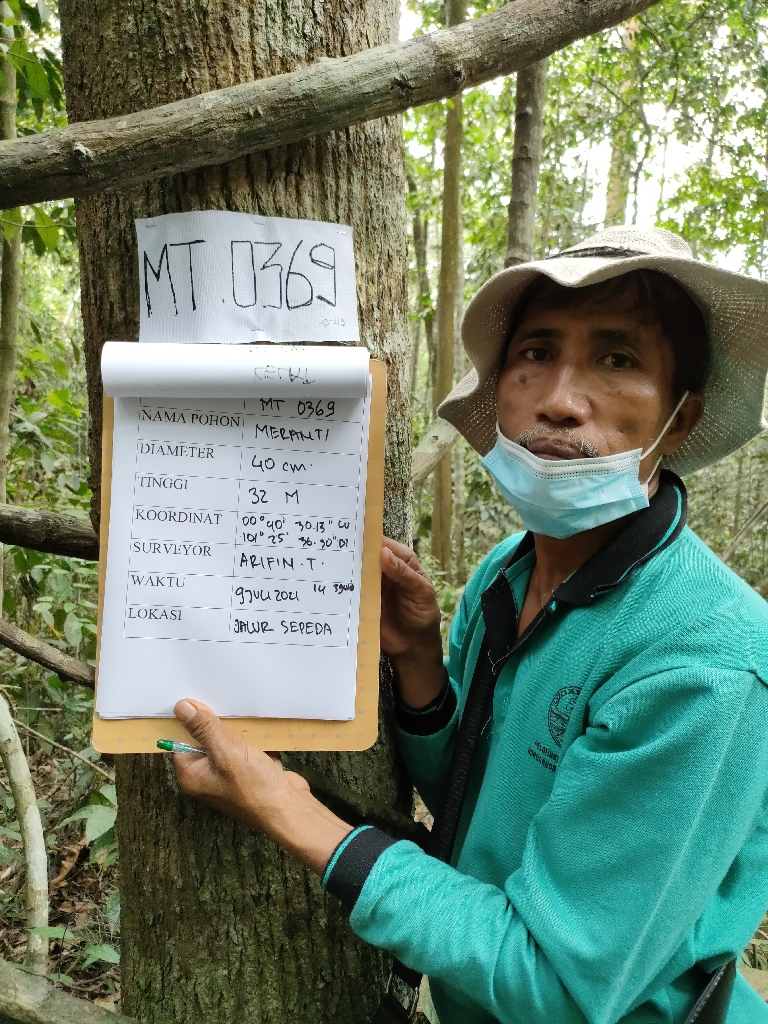 MT.0369
MT 0369
NAMA POHON MERANTI
DIAMETER 40 cm.
TINGGI 32 M
KOORDINAT 00° 40' 30.13" LU
101° 25' 36.90" DT
SURVEYOR ARIFIN.T.
WAKTU 9 JULI 2021 14
LOKASI JALUR SEPEDA